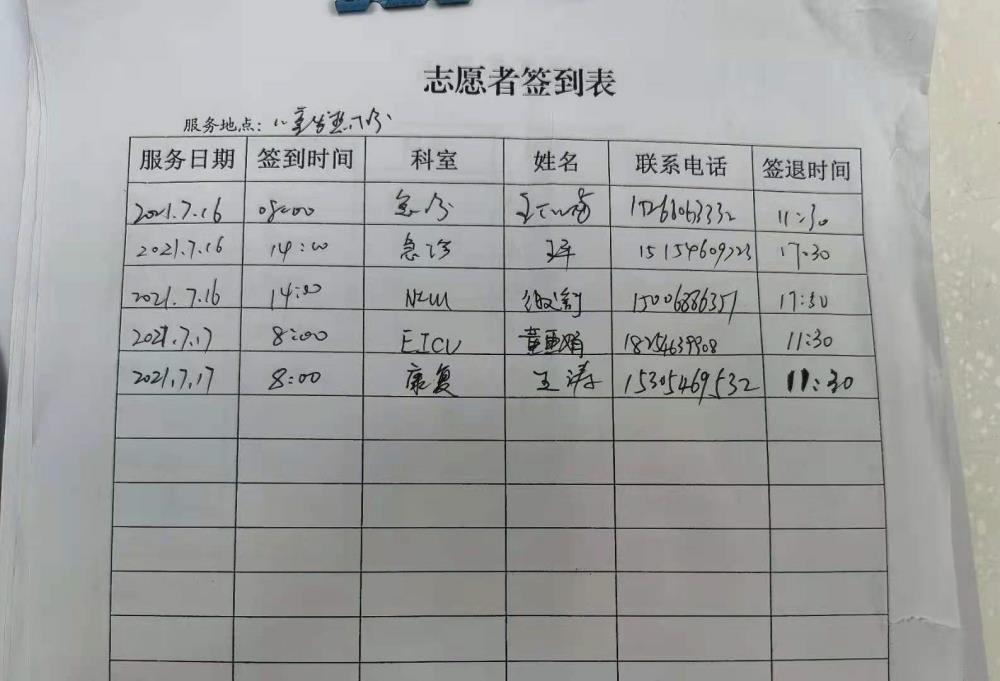 志愿者签到表
服务地点：儿童发热门诊
服务日期 签到时间 科室 姓名 联系电话 签退时间
2021.7.16 08:00 急诊 11:30
2021.7.16 14:00 急诊 17:30
2021.7.16 14:00 15006886357 17:30
2021.7.17 8:00 EICU 18254639908 11:30
2021.7.17 8:00 康复 王涛 15305469532 11:30